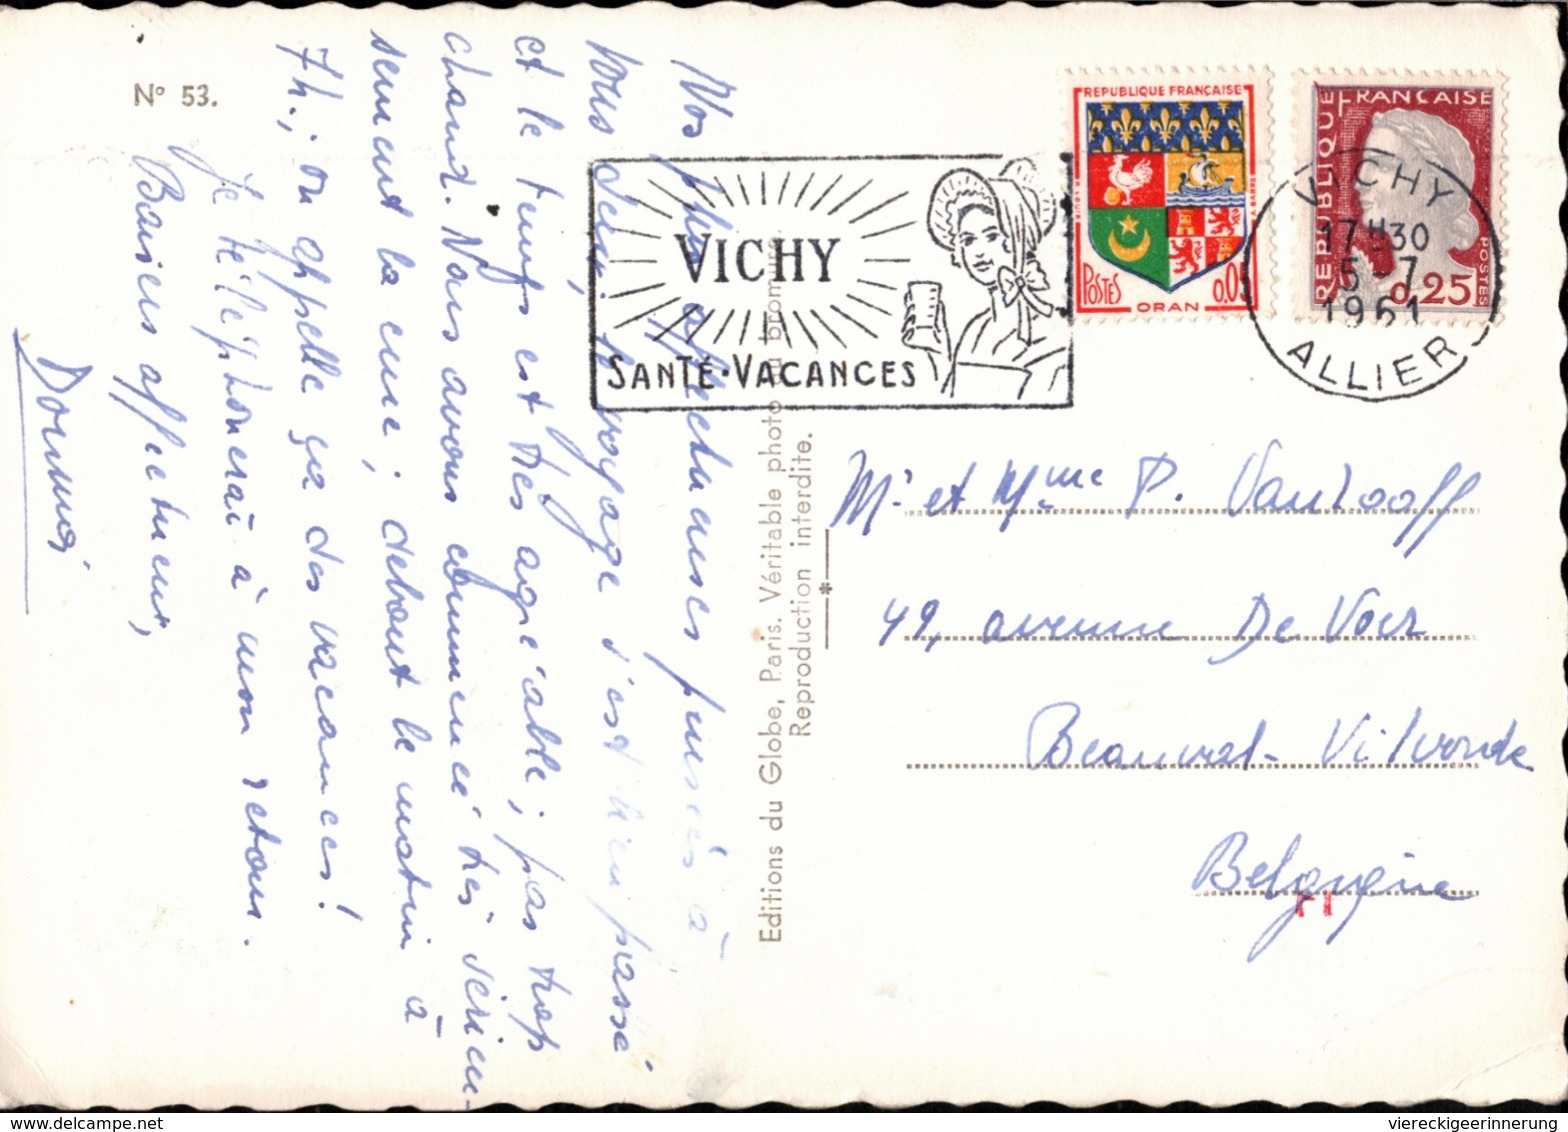 N° 53.
Nos plus affectueuses pensées à
vous deux. Le voyage s'est bien passé
et le temps est très agréable ; pas trop
chaud. Nous avons commencé très sérieu-
sement la cure ; debout le matin à
7h., on appelle ça des vacances !
Je téléphonerai à mon retour.
Baisers affectueux,
VICHY
SANTÉ·VACANCES
REPUBLIQUE FRANÇAISE
POSTES
ORAN
0,0
REPUBLIQUE FRANÇAISE
POSTES
0,25
VICHY
17H30
5-7
1961
ALLIER
Editions du Globe, Paris. Véritable photo au bromure.
Reproduction interdite.
Mr et Mme P. Vanlooff
49, avenue De Voer
Beauval-Vilvorde
Belgique
viereckigeerinnerung